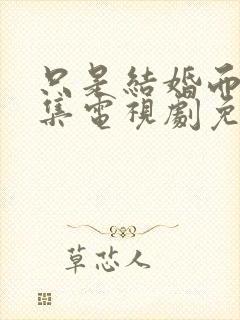 只是結婚而
集電視劇免
草芯人